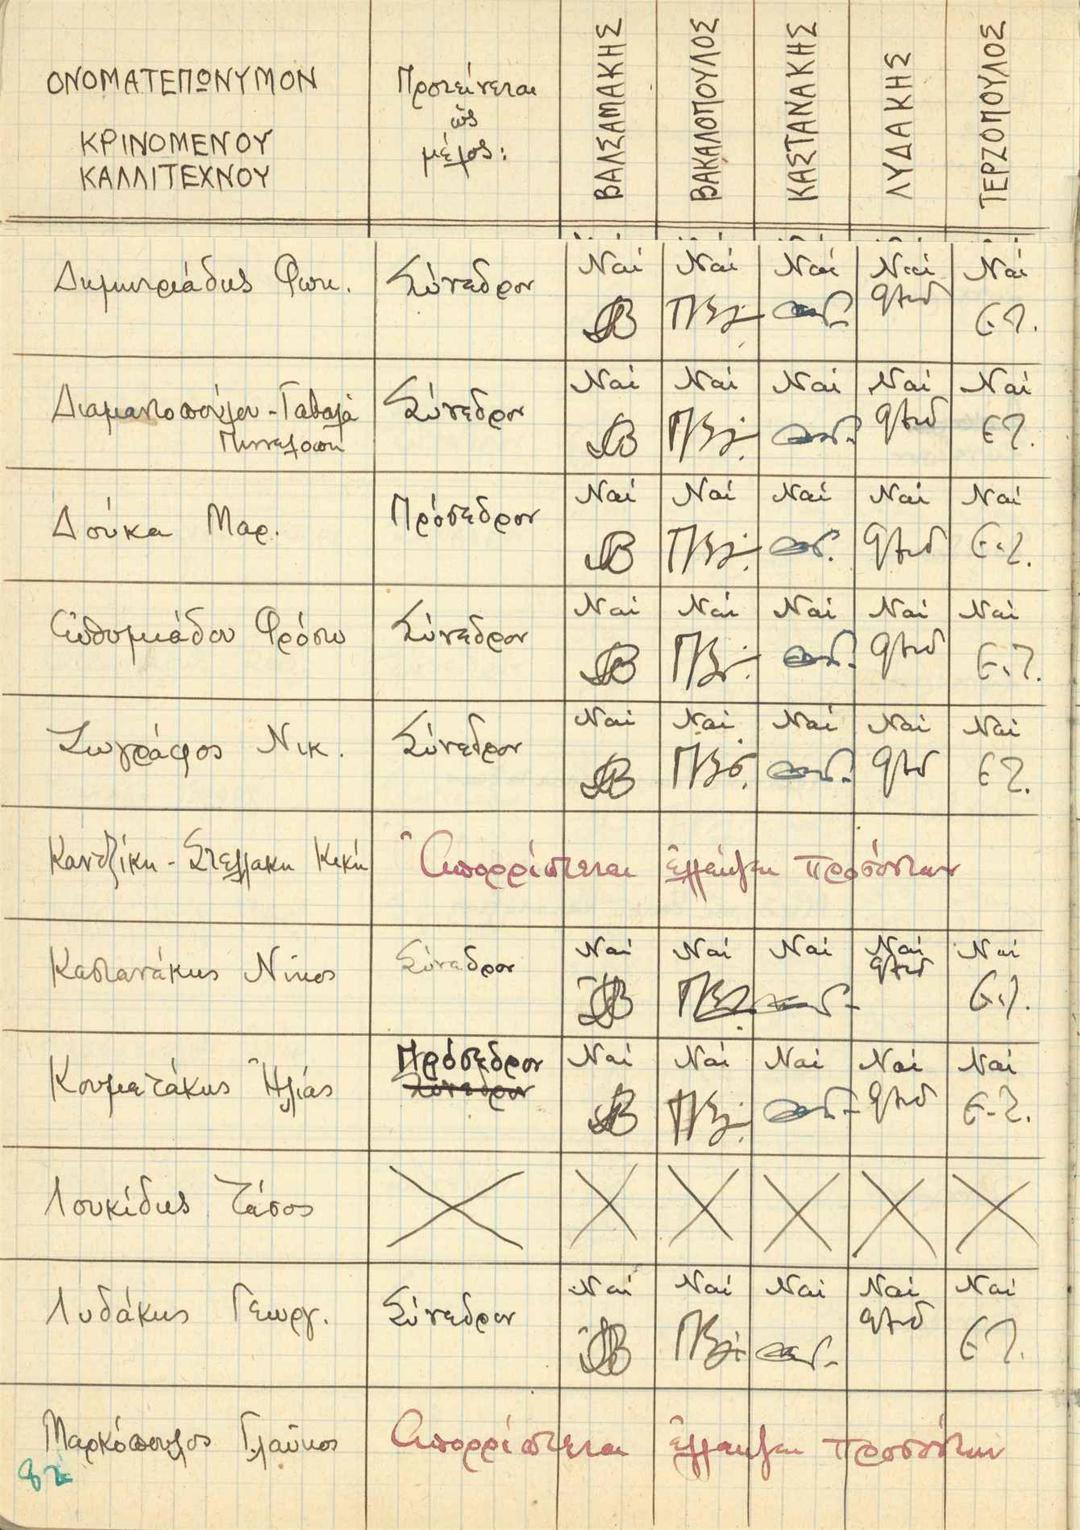 ΟΝΟΜΑΤΕΠΩΝΥΜΟΝ
ΚΡΙΝΟΜΕΝΟΥ
ΚΑΛΛΙΤΕΧΝΟΥ
Προτείνεται
ὡς
μέλος:
ΒΑΛΣΑΜΑΚΗΣ
ΒΑΚΑΛΟΠΟΥΛΟΣ
ΚΑΣΤΑΝΑΚΗΣ
ΛΥΔΑΚΗΣ
ΤΕΡΖΟΠΟΥΛΟΣ
Δημητριάδης Φωκ. Σύνεδρον Ναί Ναί Ναί Ναί Ναί
Ε.Τ.
Διαμαντοπούλου-Γαβαλά Σύνεδρον Ναί Ναί Ναί Ναί Ναί
Πηνελόπη ΕΤ.
Δούκα Μαρ. Πρόσεδρον Ναί Ναί Ναί Ναί Ναί
Ε.Τ.
Εὐθυμιάδου Φρόσω Σύνεδρον Ναί Ναί Ναί Ναί Ναί
Ε.Τ.
Ζωγράφος Νικ. Σύνεδρον Ναί Ναί Ναί Ναί Ναί
ΕΤ.
Καντζίκη - Στελλάκη Κική Ἀπορρίπτεται ἐλλείψει προσόντων
Καστανάκης Νίκος Σύνεδρον Ναί Ναί Ναί Ναί Ναί
Ε.Τ.
Κουματάκης Ἠλίας Πρόσεδρον Ναί Ναί Ναί Ναί Ναί
Σύνεδρον Ε.Τ.
Λουκίδης Τάσος
Λυδάκης Γεωργ. Σύνεδρον Ναί Ναί Ναί Ναί Ναί
ΕΤ.
Μαρκόπουλος Γλαῦκος Ἀπορρίπτεται ἐλλείψει προσόντων
82